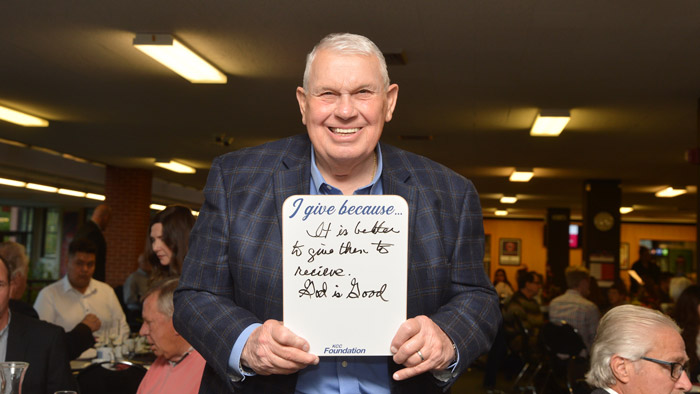 I give because...
It is better
to give then to
recieve.
God is Good
KCC
Foundation